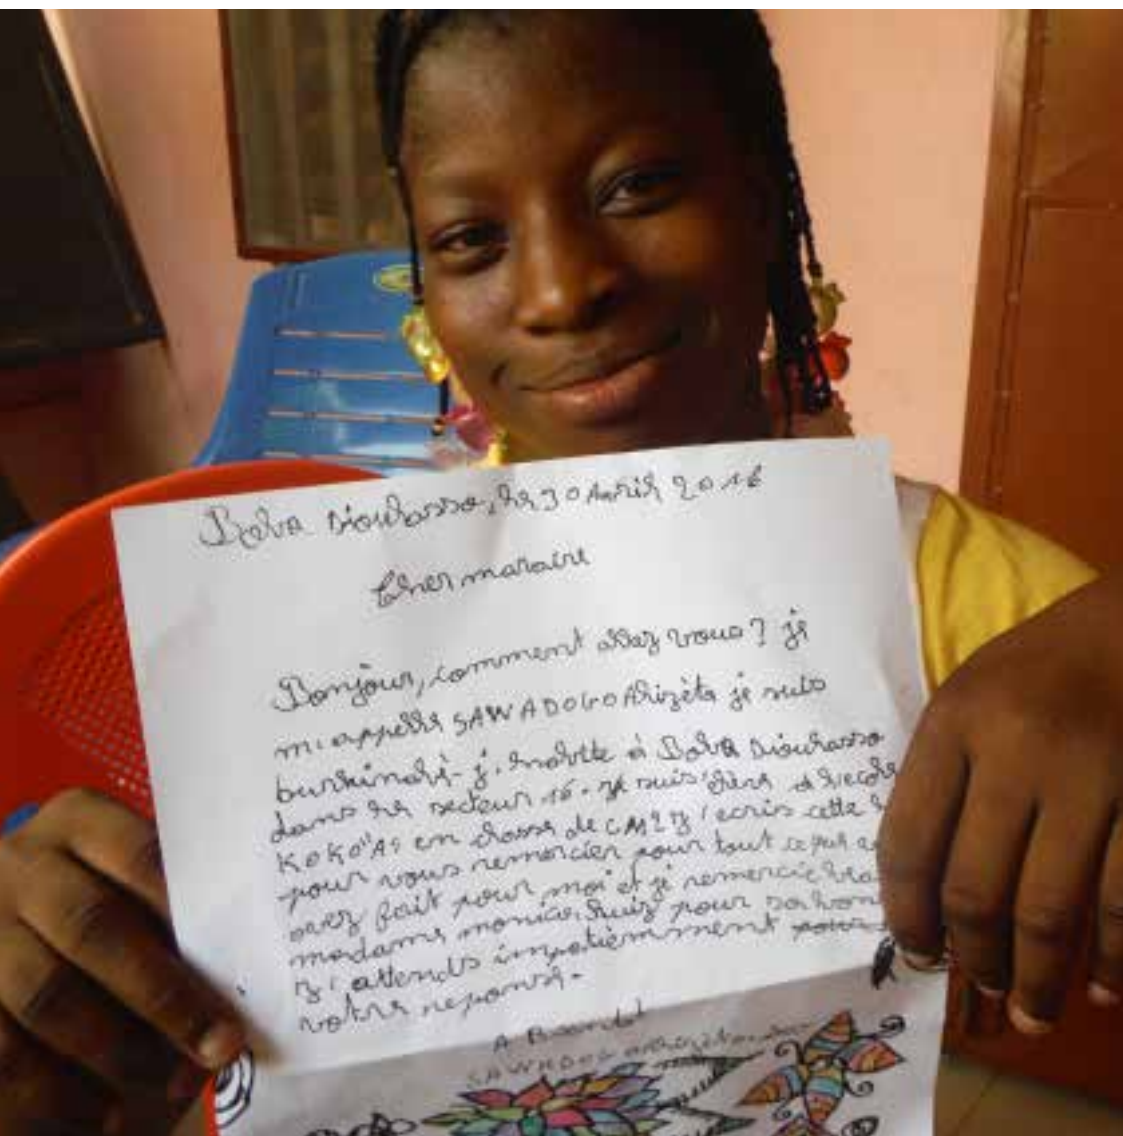 Bobo Dioulasso, le 30 Avril 2016
Cher maraine
Bonjour, comment allez vous? je
m'appelle SAWADOGO Arizèta je suis
burkinabè. j'habite à Bobo Dioulasso
dans le secteur 16. je suis élève à l'école
KOKO "A" en classe de CM2 j'écris cette
pour vous remercier pour tout ce que
avez fait pour moi et je remercie
madame monica Ruiz pour sa
j'attends impatiemment pour
votre reponse.
A Bientôt
SAWADOGO Arizèta